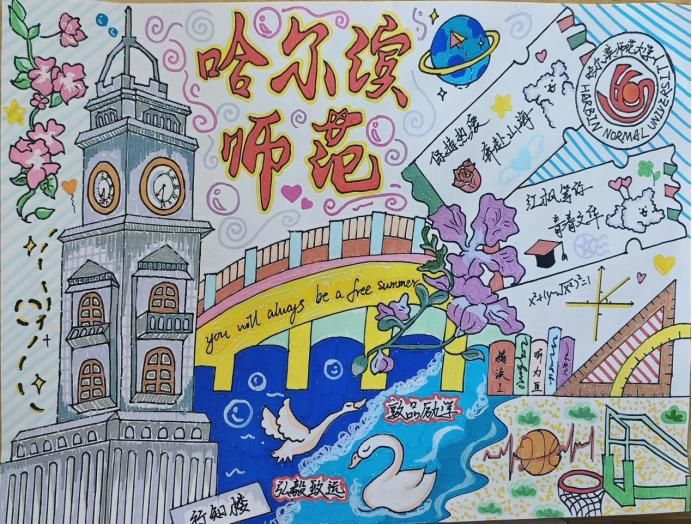 哈尔滨
师范
哈尔滨师范大学
HARBIN NORMAL UNIVERSITY
保持热爱
奔赴山海
红枫笺许
青青文华
you will always be a free summer
敦品励学
弘毅致远
行知楼